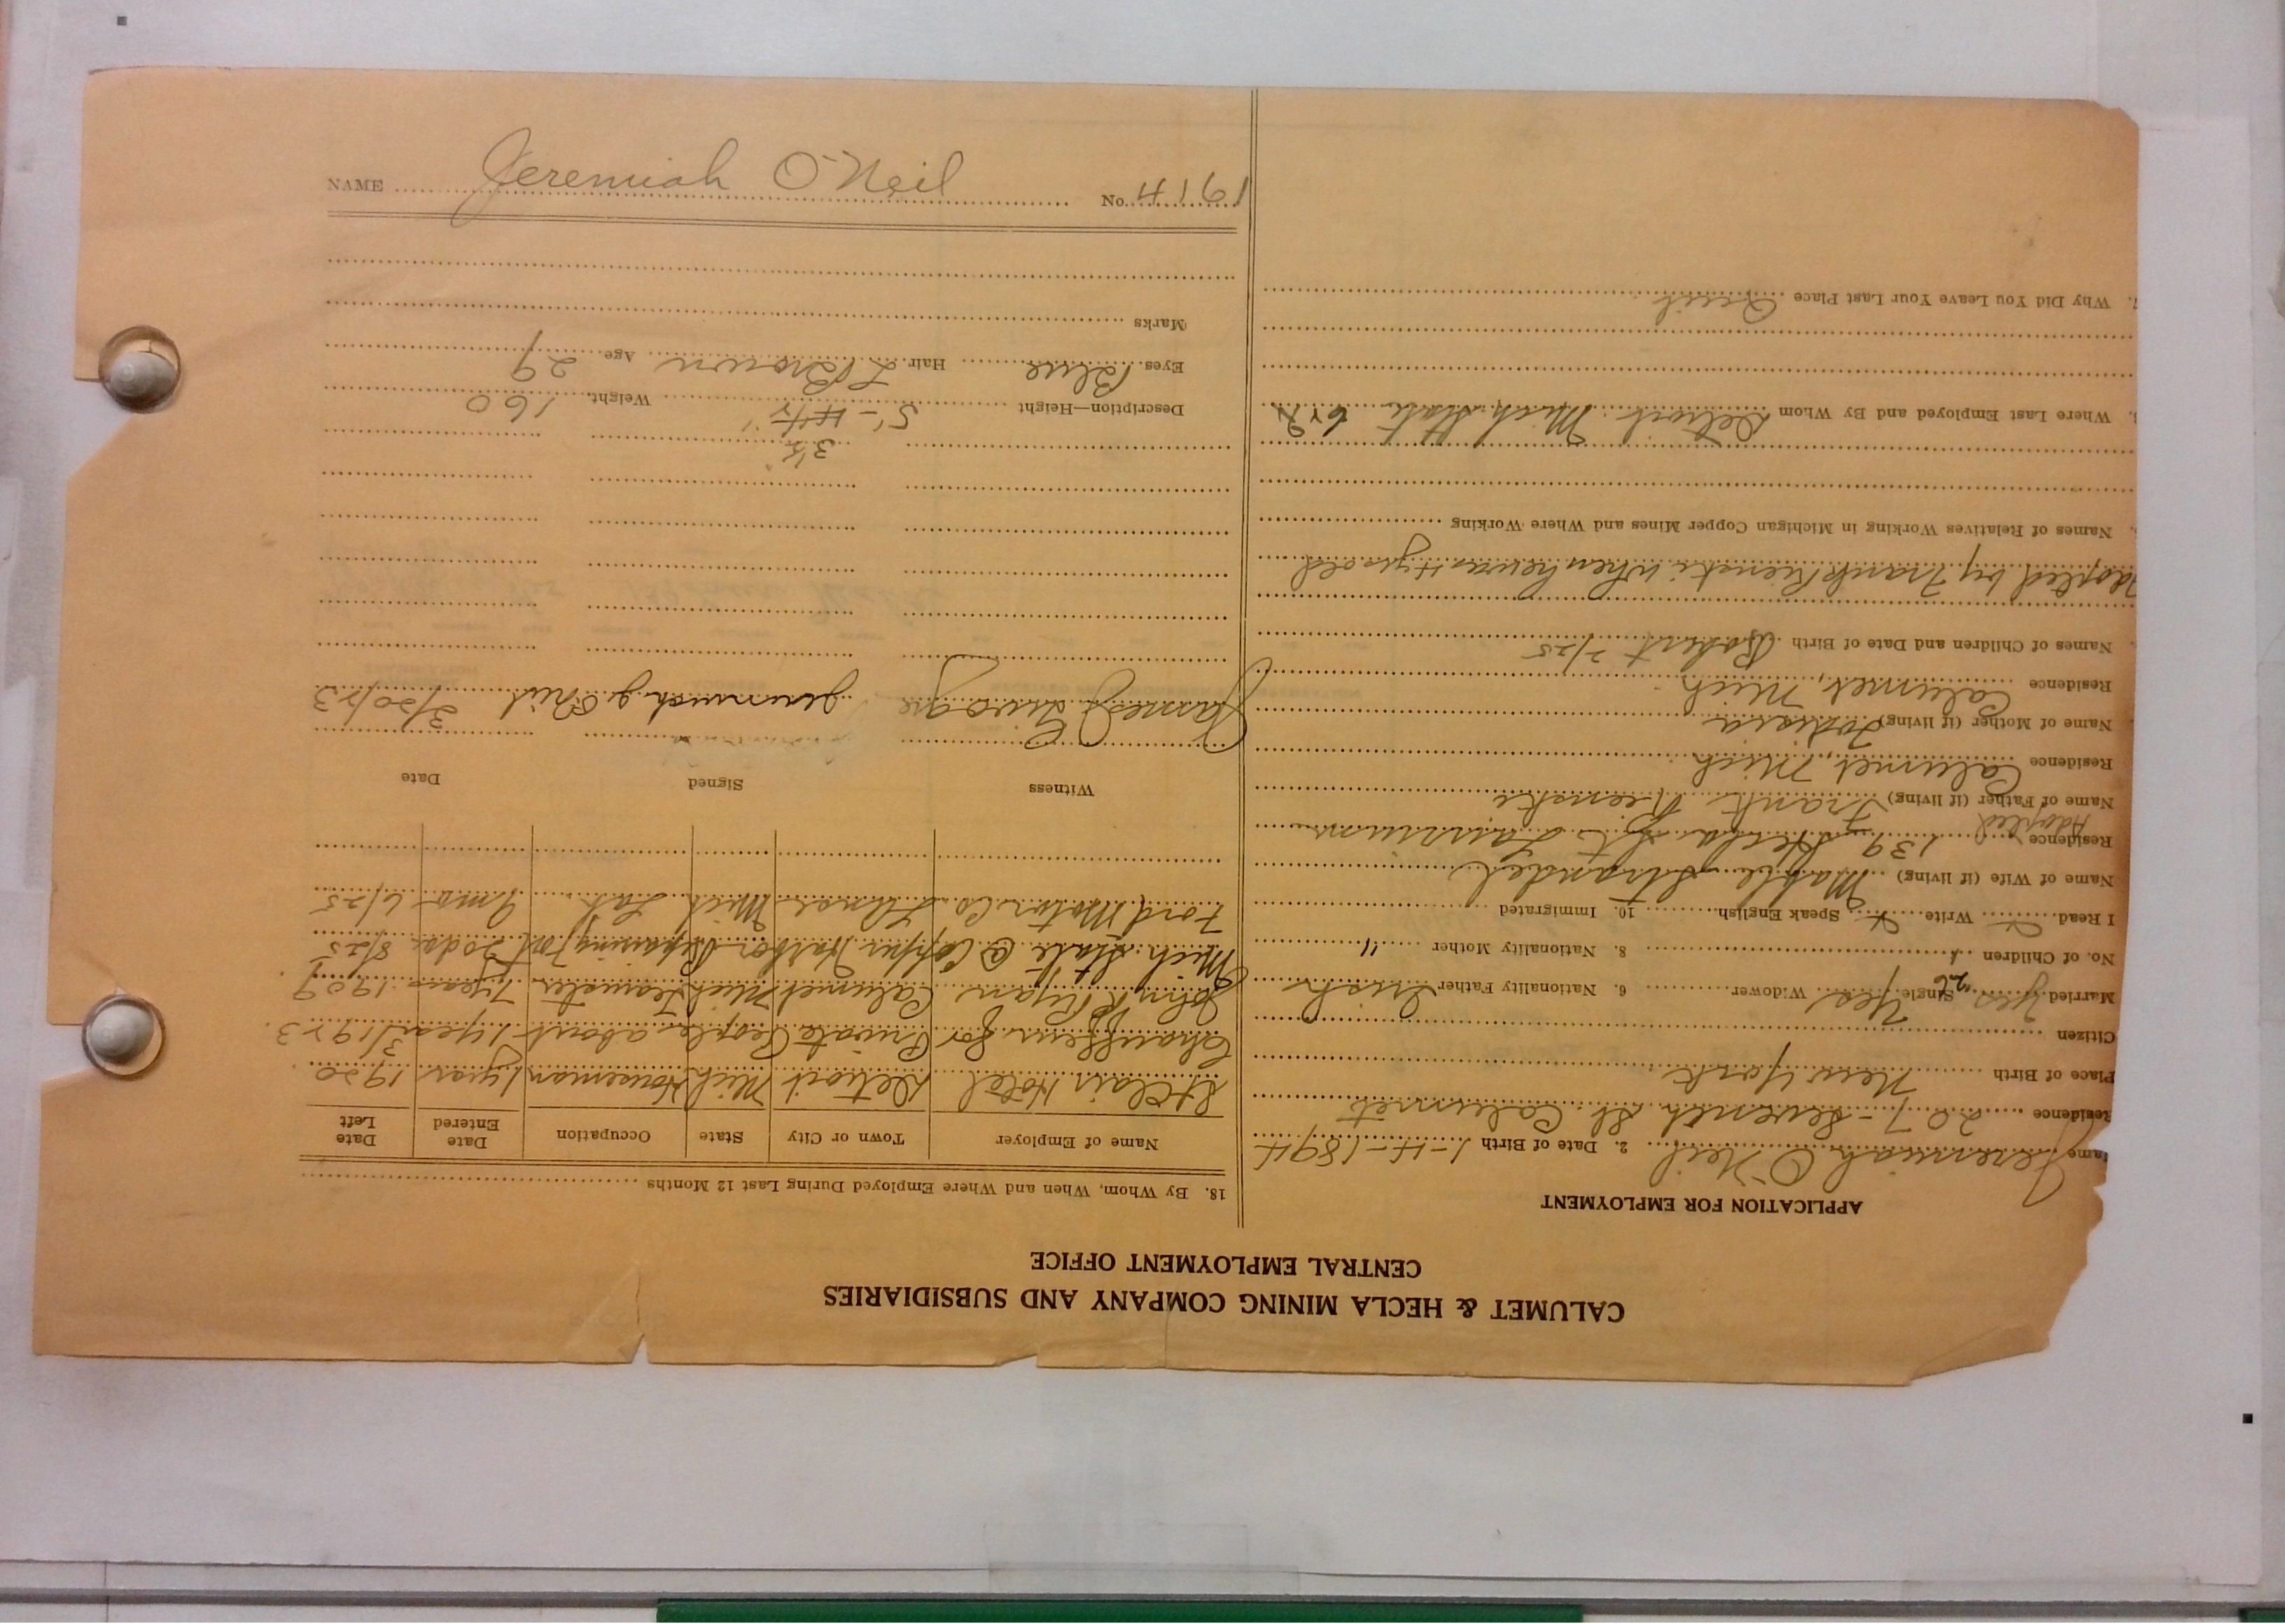 CALUMET & HECLA MINING COMPANY AND SUBSIDIARIES
CENTRAL EMPLOYMENT OFFICE
APPLICATION FOR EMPLOYMENT
ame Jeremiah O'Neil 2. Date of Birth 1-4-1894
Residence 207-Seventh St. Calumet
Place of Birth New York
Citizen Yes
Married Yes "26 Single Widower 6. Nationality Father Irish
No. of Children 1 8. Nationality Mother "
I Read x Write x Speak English x 10. Immigrated
Name of Wife (if living) Mable Strandel
Residence 139 Hecla St Laurium
Adopted
Name of Father (if living) Frank Rienski
Residence Calumet, Mich
Name of Mother (if living)
Residence Calumet, Mich
Names of Children and Date of Birth Robert 2/25
adopted by Frank Rienski when he was 4 yrs old
Names of Relatives Working in Michigan Copper Mines and Where Working
Where Last Employed and By Whom Detroit Mich. State
7. Why Did You Leave Your Last Place Quit
18. By Whom, When and Where Employed During Last 12 Months
Name of Employer Town or City State Occupation Date Entered Date Left
St Clair Hotel Detroit Mich Houseman 1 year 1920
Chauffeur for Private People about 1 year 3/1923
John R Ryan Calumet Mich Teamster 7 years 1909
Mich. State @ Copper Harbor Repairing Fort 20 da. 8/25
Ford Motor Co. L'Anse Mich Lab. 9 mo 6/25
Witness Signed Date
James Jeremiah J. O'Neil 3/20/23
3½
Description—Height 5'-4½" Weight 160
Eyes Blue Hair L Brown Age 29
Marks
NAME Jeremiah O'Neil No. 4191